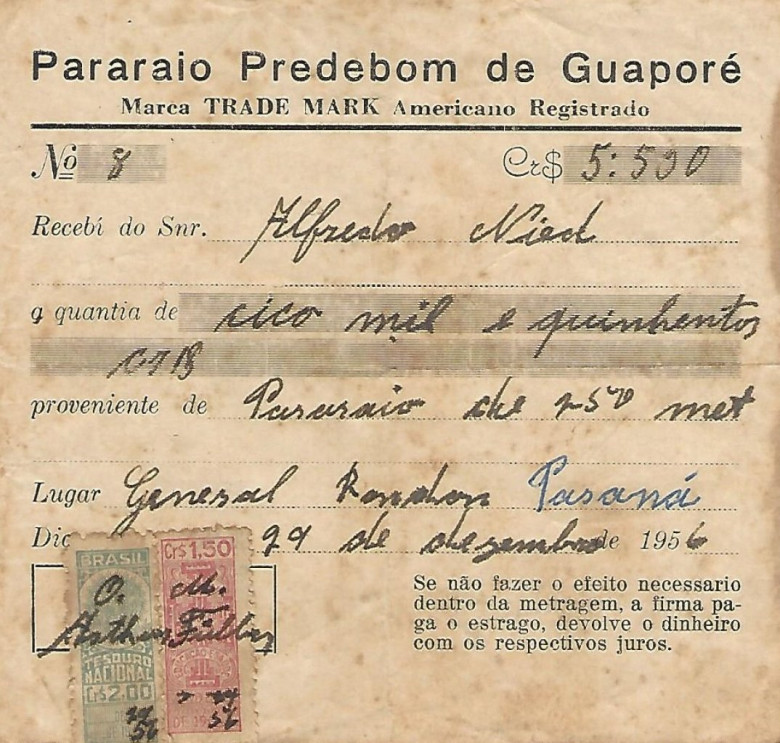 Pararaio Predebom de Guaporé
Marca TRADE MARK Americano Registrado
Nº 8 Cr$ 5:500
Recebí do Snr. Alfredo Nied
a quantia de cico mil e quinhentos
cr$
proveniente de Pararaio de 250 met
Lugar General Rondon Paraná
Dia 29 de dezembro de 1956
BRASIL
Cr$1,50
O. M.
Arthur
TESOURO
NACIONAL
Cr$2,00
56
56
Se não fazer o efeito necessario
dentro da metragem, a firma pa-
ga o estrago, devolve o dinheiro
com os respectivos juros.